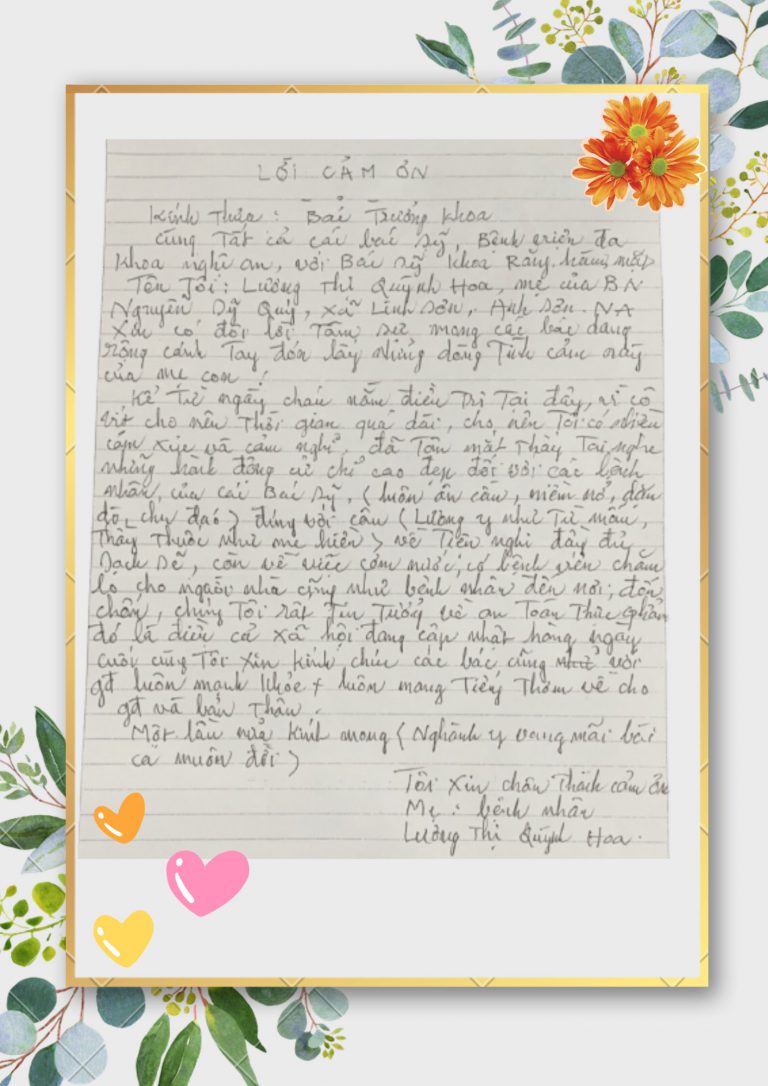 LỜI CẢM ƠN
Kính Thưa : Bác Trưởng Khoa
cùng Tất cả các bác sỹ, Bệnh viện đa
Khoa nghệ an, với Bác sỹ khoa Răng hàm mặt
Tên Tôi : Lương Thị Quỳnh Hoa, mẹ của BN
Nguyễn Sỹ Quý, xã Lĩnh Sơn, Anh Sơn. NA
Xin có đôi lời Tâm sự mong các bác dang
rộng cánh Tay đón lấy những dòng Tình cảm này
của mẹ con !
Kể Từ ngày cháu nằm điều Trị Tại đây, vì có
vít cho nên Thời gian quá dài, cho nên Tôi có nhiều
cảm xúc và cảm nghĩ, đã Tận mắt Thấy Tai nghe
những hành động cử chỉ cao đẹp đối với các bệnh
nhân, của các Bác sỹ, ( luôn ân cần, niềm nở, dặn
dò, chu đáo ) đúng với câu ( Lương y như Từ mẫu,
Thầy Thuốc như mẹ hiền ) về Tiện nghi đầy đủ
Sạch sẽ, còn về việc cơm nước, có bệnh viện chăm
lo cho người nhà cũng như bệnh nhân đến nơi, đến
chốn, chúng Tôi rất Tin Tưởng về an Toàn Thực phẩm
đó là điều cả xã hội đang cập nhật hàng ngày
cuối cùng Tôi xin kính chúc các bác cùng với
gđ luôn mạnh khỏe + luôn mang Tiếng Thơm về cho
gđ và bản Thân.
Một lần nữa kính mong ( Nghành y vang mãi bài
ca muôn đời )
Tôi xin chân Thành cảm ơn
Mẹ : bệnh nhân
Lương Thị Quỳnh Hoa.